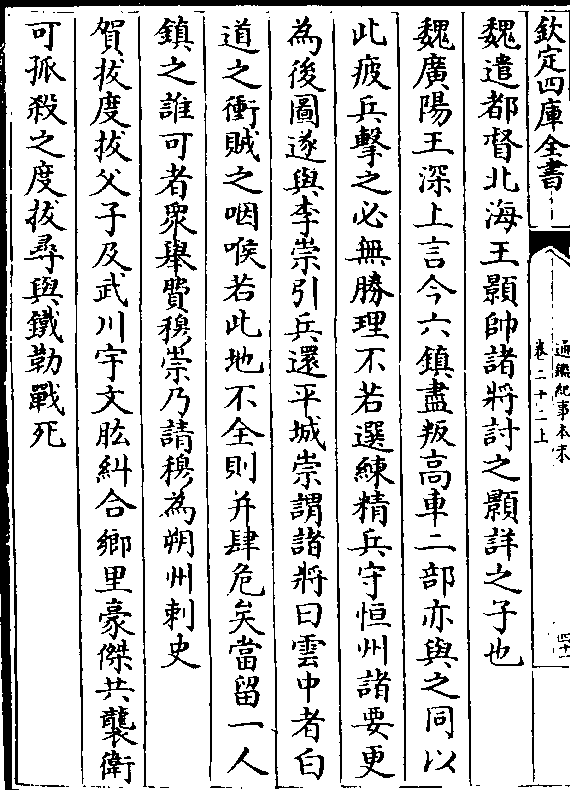 欽定四庫全書
通鑑紀事本末
卷二十二上
四十一
魏遣都督北海王顥帥諸將討之顥詳之子也
魏廣陽王深上言今六鎮盡叛高車二部亦與之同以
此疲兵擊之必無勝理不若選練精兵守恒州諸要更
為後圖遂與李崇引兵還平城崇謂諸將曰雲中者白
道之衝賊之咽喉若此地不全則并肆危矣當留一人
鎮之誰可者衆舉費穆崇乃請穆為朔州刺史
賀拔度拔父子及武川宇文肱糾合鄉里豪傑共襲衛
可孤殺之度拔尋與鐵勒戰死